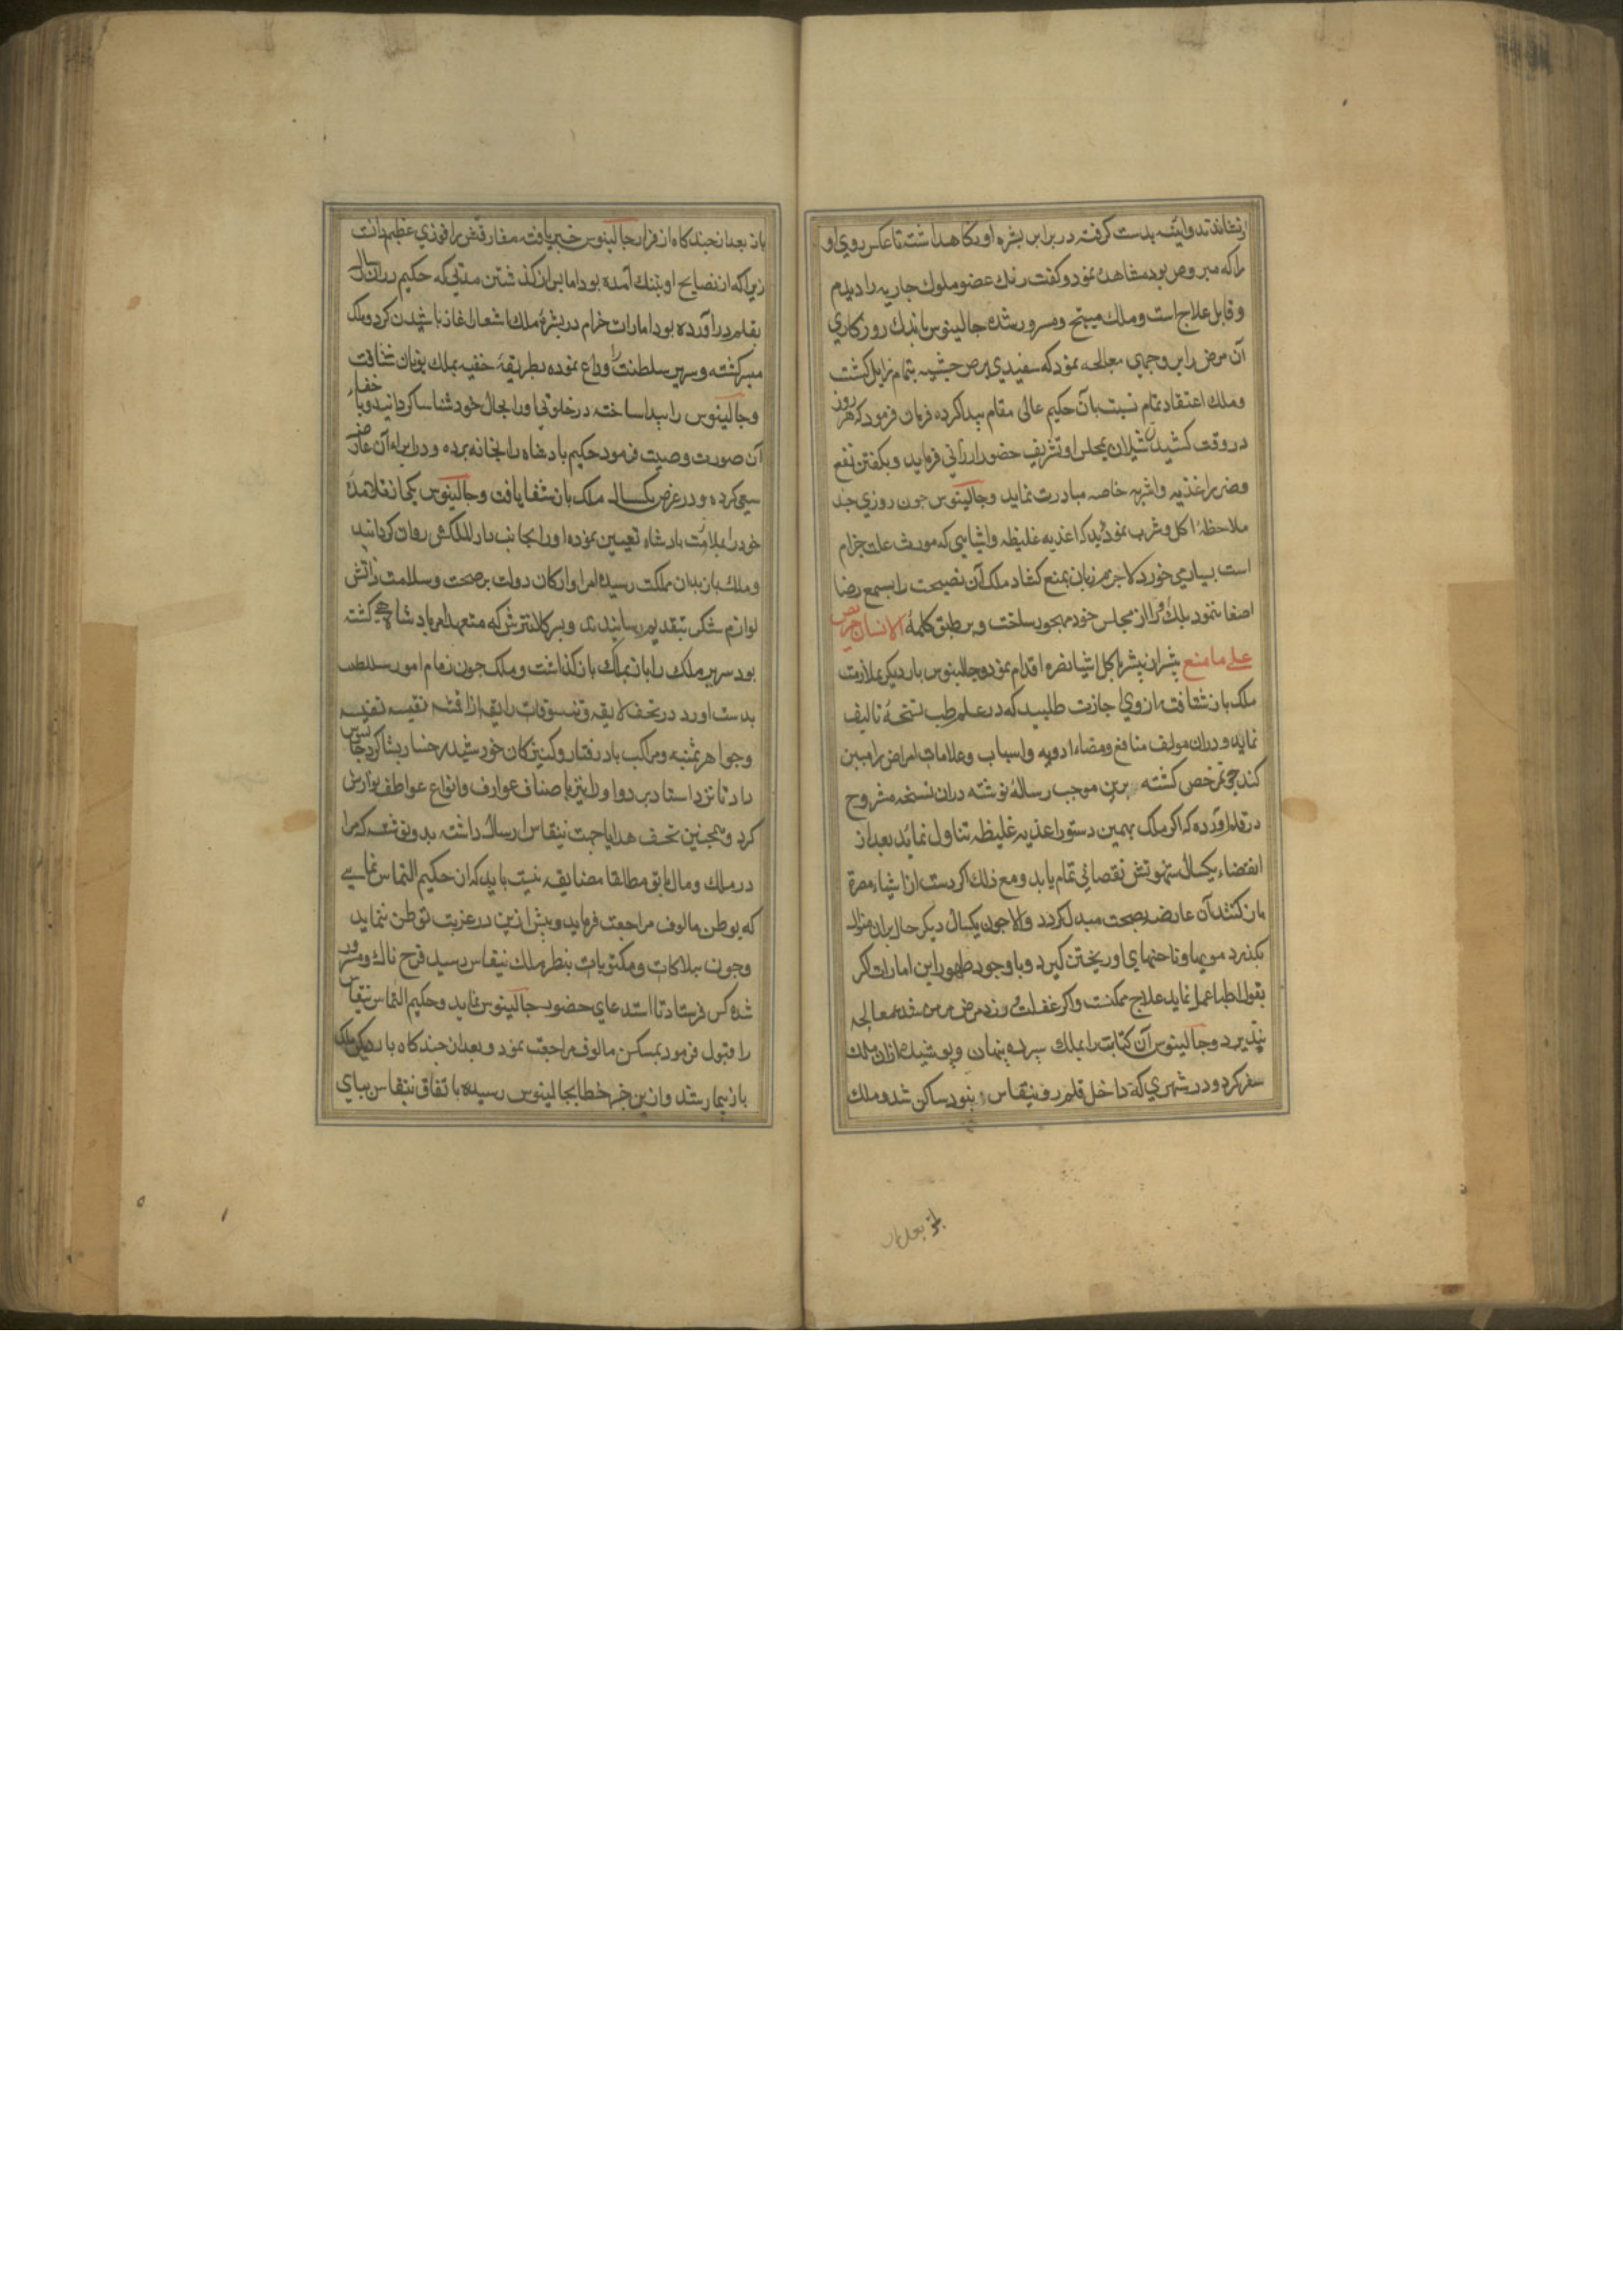 ازنشاندند و آینه بدست گرفته در برابر بشره او نگاهداشت تا عکس روی او
را که مبروص بود مشاهده نمود و گفت رنک عضو ملوک جاریه را دیدم
و قابل علاج است و ملک مبتهج و مسرور شده جالینوس باندک روزکاری
آن مرض را بر وجهی معالجه نمود که سفیدی برص جبشیه بتمام زایل کشت
و ملک اعتقاد تمام نسبت بآن حکیم عالی مقام پیدا کرده فرمان فرمود که هر روز
در وقت کشیدن شیلان بمجلس او تشریف حضور ارزانی فرماید و بکفتن نفع
و ضر براغذیه و اشربه خاصه مبادرت نماید و جالینوس جون روزی جند
ملاحظهٔ اکل و شرب نمود دید که اغذیه غلیظه و اشیایی که مورث علت جزام
است بسیار می خورد لاجرم زبان بمنع کشاد ملک آن نصیحت را بسمع رضا
اصغا ننمود بلکه او را از مجلس خود مهجور ساخت و بر طبق کلمهٔ الانسان حریص
علی ما منع بیشتر از پیشتر باکل اشیا مضره اقدام نمود و جالینوس بار دیگر بملازمت
ملک باز شتافته از وی اجازت طلبید که در علم طب نسخهٔ تالیف
نماید و دران مولف منافع و مضار ادویه و اسباب و علامات امراض را مبین
کند و جون مرخص کشته برین موجب رسالهٔ نوشته دران نسخه مشروح
در قلم آورده که اگر ملک بهمین دستور اغذیه غلیظه تناول نماید بعد از
انقضاء یکسال شهوتش نقصانی تمام یابد و مع ذلک اگر دست از اشیاء مضرة
بازکشد آن عارضه بصحت مبدل کردد و الا جون یکسال دیگر حال بران منوال
بکذرد مویها و ناخنهای او ریختن گیرد و باوجود ظهور این امارات اکر
بقول اطبا عمل نماید علاج ممکنست و اکر غفلت ورزد مرض مزمن شده معالجه
نپذیرد و جالینوس آن کتابت را بملک سپرده پنهان و پوشیده ازان ملک
سفر کرد و در شهری که داخل قلمرو نیتقاس نبود ساکن شد و ملک
باز بعد ازان
باز بعد از چندکاه از فرار جالینوس خبر یافته مفارقتش را فوزی عظیم دانست
زیرا که از نصایح او بتنک آمده بود اما پس از کذشتن مدتی که حکیم دران رساله
بقلم درآورده بود امارات جزام در بشرهٔ ملک باشعال آغاز پاشیدن کرد و ملک
متبرکشته و سریر سلطنت را وداع نموده بطریقهٔ خفیه بملک یونان شتافت
و جالینوس را پیدا ساخته در خلوتی او را بحال خود شناسا کردانید و باخفاء
آن صورت وصیت فرمود حکیم پادشاه را بخانه برده و در ابراء آن عارضه
سعی کرده و در عرض یکسال ملک باز شفا یافت و جالینوس یکی از تلامذهٔ
خود را بملازمت پادشاه تعیین نموده او را بجانب دارالملکش روان کردانید
و ملک باز بدان مملکت رسیده امرا و ارکان دولت بر صحت و سلامت ذاتش
لوازم شکر بتقدیم رسانیدند و پسر کلانترش که متعهد امر پادشاهی کشته
بود سریر ملک را باز بملک بازگذاشت و ملک جون زمام امور سلطنت
بدست اورد در تحف لایقه و تنسوقات رایقه از اقمشه نفیسه
و جواهر ثمینه و مراکب بادرفتار و کنیزکان خورشید رخسار بشاکرد جالینوس
داد تا نزد استاد برد و او را نیز باصناف عوارف و انواع عواطف نوازش
کرد و همجنین تحف هدایا جهت نیتقاس ارسال داشته بدو نوشت که مرا
در ملک و مال با تو مطلقا مضایقه نیست باید که ازان حکیم التماس نمایی
که بوطن مالوف مراجعت فرماید و بیش ازین در غربت توطن ننماید
و جون بیلاکات و مکتوبات بنظر ملک نیتقاس رسید فرح ناک و مسرور
شده کس فرستاد تا استدعای حضور جالینوس نماید و حکیم التماس نیتقاس
را قبول فرمود بمسکن مالوف مراجعت نمود و بعد از جندکاه بار دیکر ملک
باز بیمار شد و ازین جهة خطا بجالینوس رسیده باتفاق نیتقاس بپای